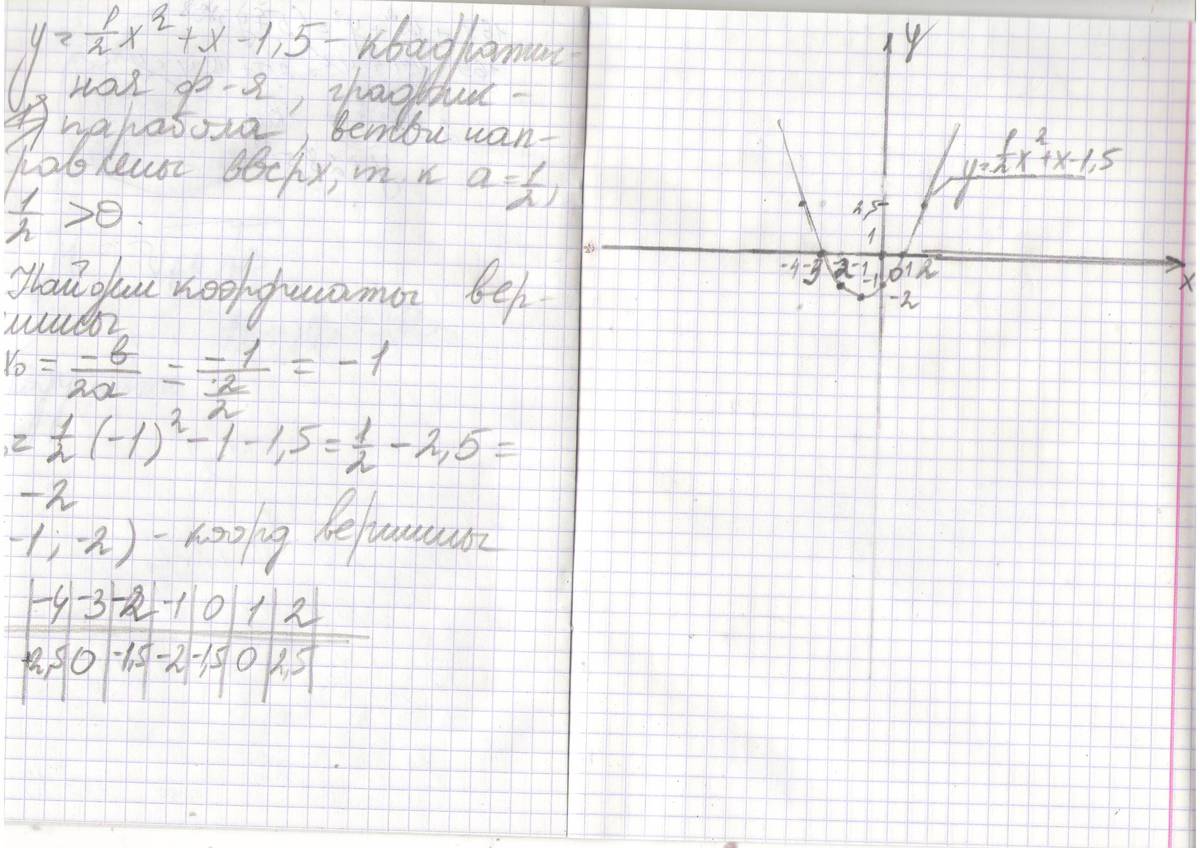 y = 1/2 x² + x - 1,5 - квадратич-
ная ф-я, график -
парабола, ветви нап-
равлены вверх, т к а = 1/2,
1/2 > 0.
Найдем координаты вер-
шины
x₀ = -в/2а = -1/(2/2) = -1
= 1/2 (-1)² - 1 - 1,5 = 1/2 - 2,5 =
-2
-1; -2) - коорд вершины
-4 | -3 | -2 | -1 | 0 | 1 | 2
2,5 | 0 | -1,5 | -2 | -1,5 | 0 | 2,5
y
y = 1/2 x² + x - 1,5
2,5
1
-4 -3 -2 -1 0 1 2
-1
-2
x